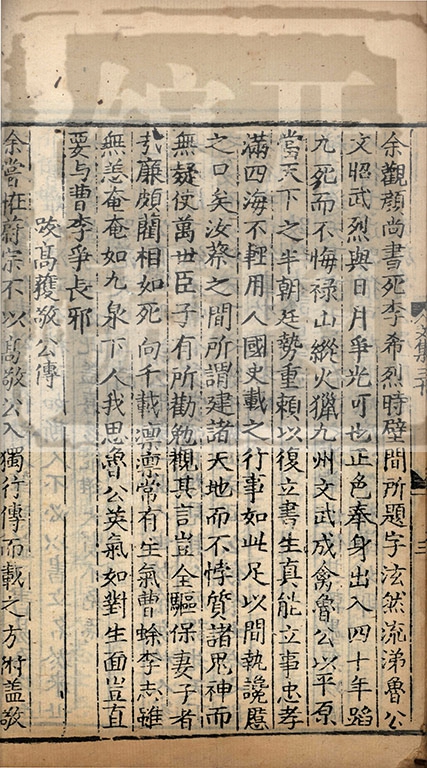 余觀顔尚書死李希烈時壁間所題字泫然流涕魯公
文昭武烈與日月爭光可也正色奉身出入四十年蹈
九死而不悔禄山縱火獵九州文武成禽魯公以平原
當天下之半朝廷勢重賴以復立書生真能立事忠孝
滿四海不輕用人國史載之行事如此足以間執讒慝
之口矣汝蔡之間所謂建諸天地而不悖質諸鬼神而
無疑使萬世臣子有所勸勉觀其言豈全軀保妻子者
㢤廉頗藺相如死向千載凛凛常有生氣曹蜍李志雖
無恙奄奄如九泉下人我思魯公英氣如對生面豈直
要与曹李爭長邪
跋髙獲敬公傳
余嘗恠蔚宗不以髙敬公入獨行傳而載之方術盖敬
三